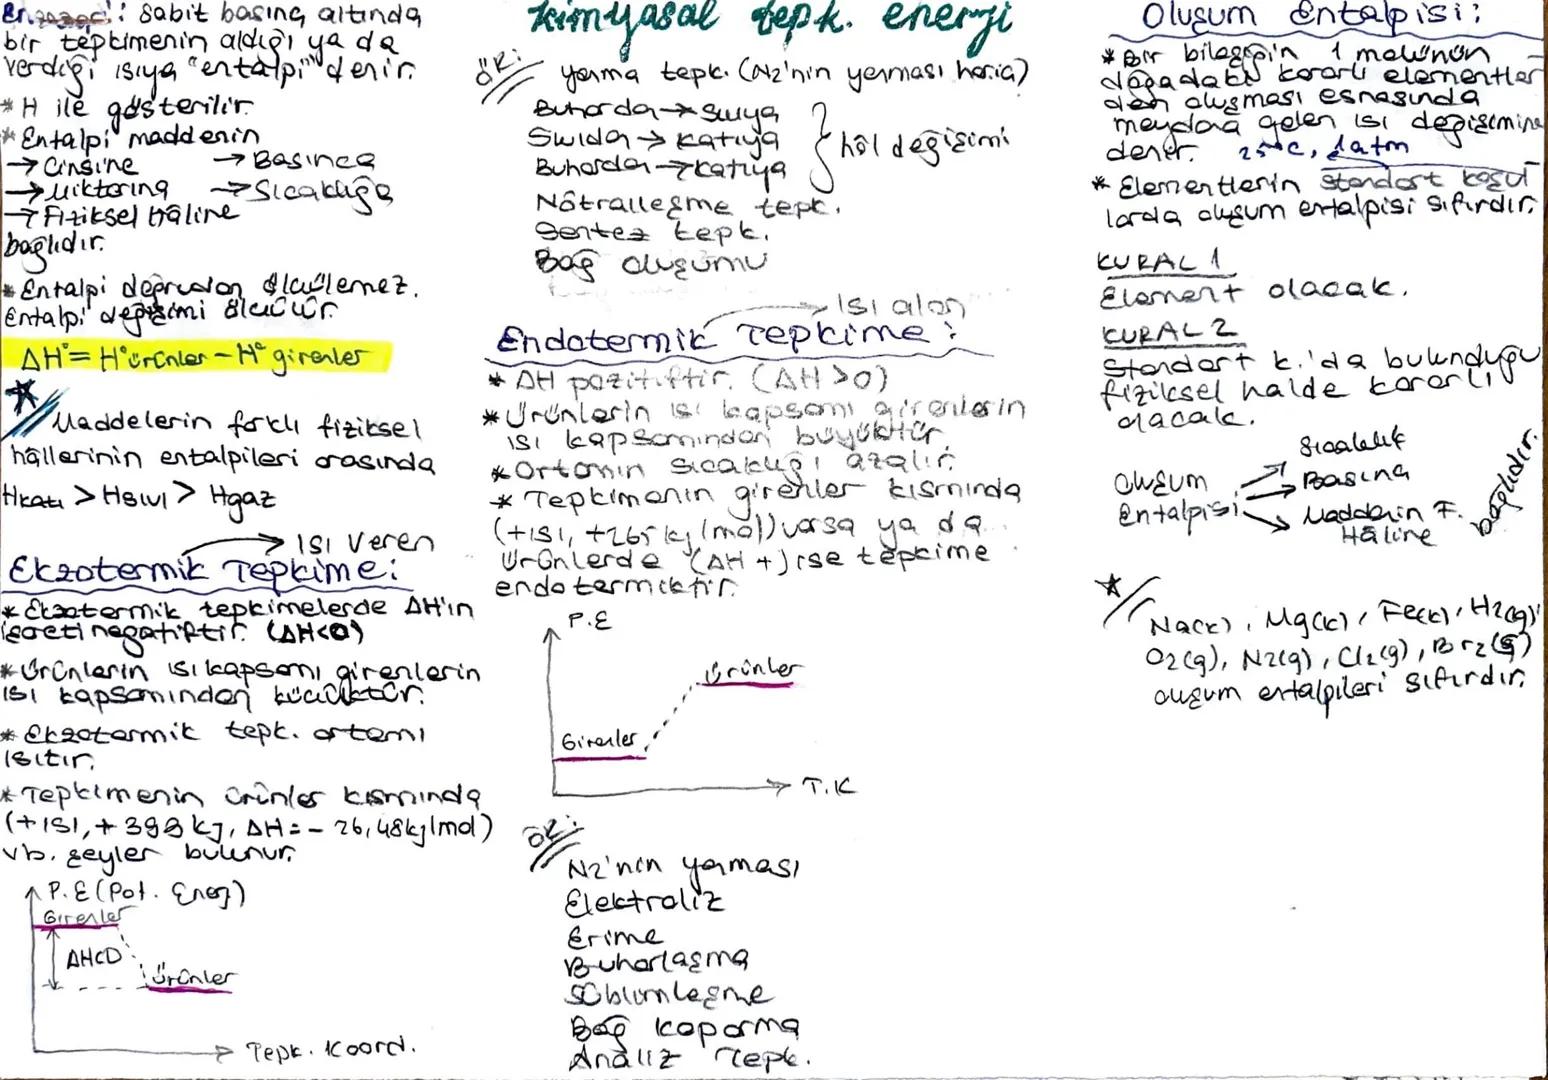 kimyasal tepk. enerji
sabit basınç altında
bir tepkimenin aldığı ya da
verdiği ısıya "entalpi" denir.
* H ile gösterilir.
* Entalpi maddenin
→ Cinsine → Basınca
→ Miktarına → Sıcaklığa
→ Fiziksel hâline
bağlıdır.
* Entalpi doğrudan ölçülemez.
Entalpi değişimi ölçülür.
ΔH° = H°ürünler - H° girenler
Maddelerin farklı fiziksel
hâllerinin entalpileri arasında
Hkatı > Hsıvı > Hgaz
→ ISI Veren
Ekzotermik Tepkime:
* Ekzotermik tepkimelerde ΔH'ın
işareti negatiftir. (ΔH<0)
* Ürünlerin ısı kapsamı girenlerin
ısı kapsamından küçüktür.
* Ekzotermik tepk. ortamı
ısıtır.
* Tepkimenin ürünler kısmında
(+ISI, + 393 kj, ΔH = - 26,48kj/mol)
vb. şeyler bulunur.
P.E (Pot. Enerj)
Girenler
ΔH<0
Ürünler
Tepk. Koord.
ÖR:
yanma tepk. (N2'nin yanması hariç)
Buhardan → Sıvıya
Sıvıdan → katıya
Buhardan → katıya
hâl değişimi
Nötralleşme tepk.
Sentez tepk.
Bağ oluşumu
→ ISI alan
Endotermik Tepkime:
* ΔH pozitiftir. (ΔH>0)
* Ürünlerin ısı kapsamı girenlerin
ısı kapsamından büyüktür.
* Ortamın sıcaklığı azalır.
* Tepkimenin girenler kısmında
(+ISI, +265 kj/mol) varsa ya da
Ürünlerde (ΔH +) ise tepkime
endotermiktir.
P.E
Ürünler
Girenler
T.K
ÖR:
N2'nin yanması
Elektroliz
Erime
Buharlaşma
Süblimleşme
Bağ koparma
Analiz Tepk.
Oluşum Entalpisi:
* Bir bileşiğin 1 molünün
doğadaki kararlı elementler
den oluşması esnasında
meydana gelen ısı değişimine
denir. 25°C, 1atm
* Elementlerin standart koşul
larda oluşum entalpisi sıfırdır.
KURAL 1
Element olacak.
KURAL 2
Standart k.'da bulunduğu
fiziksel halde kararlı
olacak.
Oluşum
Entalpisi
Sıcaklık
Basınç
Maddenin F.
Hâline
bağlıdır.
Na(k), Mg(k), Fe(k), H2(g)
O2(g), N2(g), Cl2(g), Br2(g)
oluşum entalpileri sıfırdır.